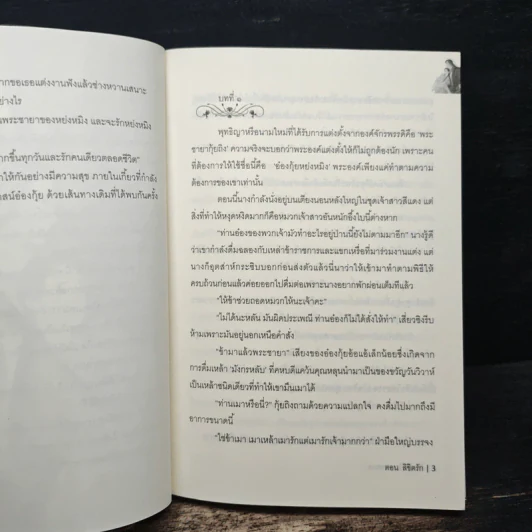 ากขอเธอแต่งงานฟังแล้วช่างหวานเสนาะ
อย่างไร
นพระชายาของหย่งหมิง และจะรักหย่งหมิง
ากขึ้นทุกวันและรักคนเดียวตลอดชีวิต"
าให้กันอย่างมีความสุข ภายในเกี้ยวที่กำลัง
าสน์อ๋องกุ้ย ด้วยเส้นทางเดิมที่ได้พบกันครั้ง
บทที่ ๑
พุทธิญาหรือนามใหม่ที่ได้รับการแต่งตั้งจากองค์จักรพรรดิคือ 'พระ
ชายากุ้ยถิง' ความจริงจะบอกว่าพระองค์แต่งตั้งให้ก็ไม่ถูกต้องนัก เพราะคน
ที่ต้องการให้ใช้ชื่อนี้คือ 'อ๋องกุ้ยหย่งหมิง' พระองค์เพียงแค่ทำตามความ
ต้องการของเขาเท่านั้น
ตอนนี้นางกำลังนั่งอยู่บนเตียงนอนหลังใหญ่ในชุดเจ้าสาวสีแดง แต่
สิ่งที่ทำให้หงุดหงิดมากก็คือหมวกเจ้าสาวอันหนักอึ้งใบนี้ต่างหาก
"ท่านอ๋องของพวกเจ้ามัวทำอะไรอยู่ป่านนี้ยังไม่ตามมาอีก" นางรู้ดี
ว่าเขากำลังดื่มฉลองกับเหล่าข้าราชการและแขกเหรื่อที่มาร่วมงานแต่ง แต่
นางก็อุตส่าห์กระซิบบอกก่อนส่งตัวแล้วนี่นาว่าให้เข้ามาทำตามพิธีให้
ครบถ้วนก่อนแล้วค่อยออกไปดื่มต่อเพราะนางอยากพักผ่อนเต็มทีแล้ว
"ให้ข้าช่วยถอดหมวกให้นะเจ้าคะ"
"ไม่ได้นะหลัน มันผิดประเพณี ท่านอ๋องก็ไม่ได้สั่งให้ทำ" เสี่ยวชิงรีบ
ห้ามเพราะมันอยู่นอกเหนือคำสั่ง
"ข้ามาแล้วพระชายา" เสียงของอ๋องกุ้ยอ้อแอ้เล็กน้อยซึ่งเกิดจาก
การดื่มเหล้า 'มังกรหลับ' ที่คหบดีแคว้นคุณหลุนนำมาเป็นของขวัญวันวิวาห์
เป็นเหล้าชนิดเดียวที่ทำให้เขามึนเมาได้
"ท่านเมาหรือนี่?" กุ้ยถิงถามด้วยความแปลกใจ คงดื่มไปมากถึงมี
อาการขนาดนี้
"ใช่ข้าเมา เมาเหล้าเมารักแต่เมารักเจ้ามากกว่า" ฝ่ามือใหญ่บรรจง
ตอน ลิขิตรัก | 3